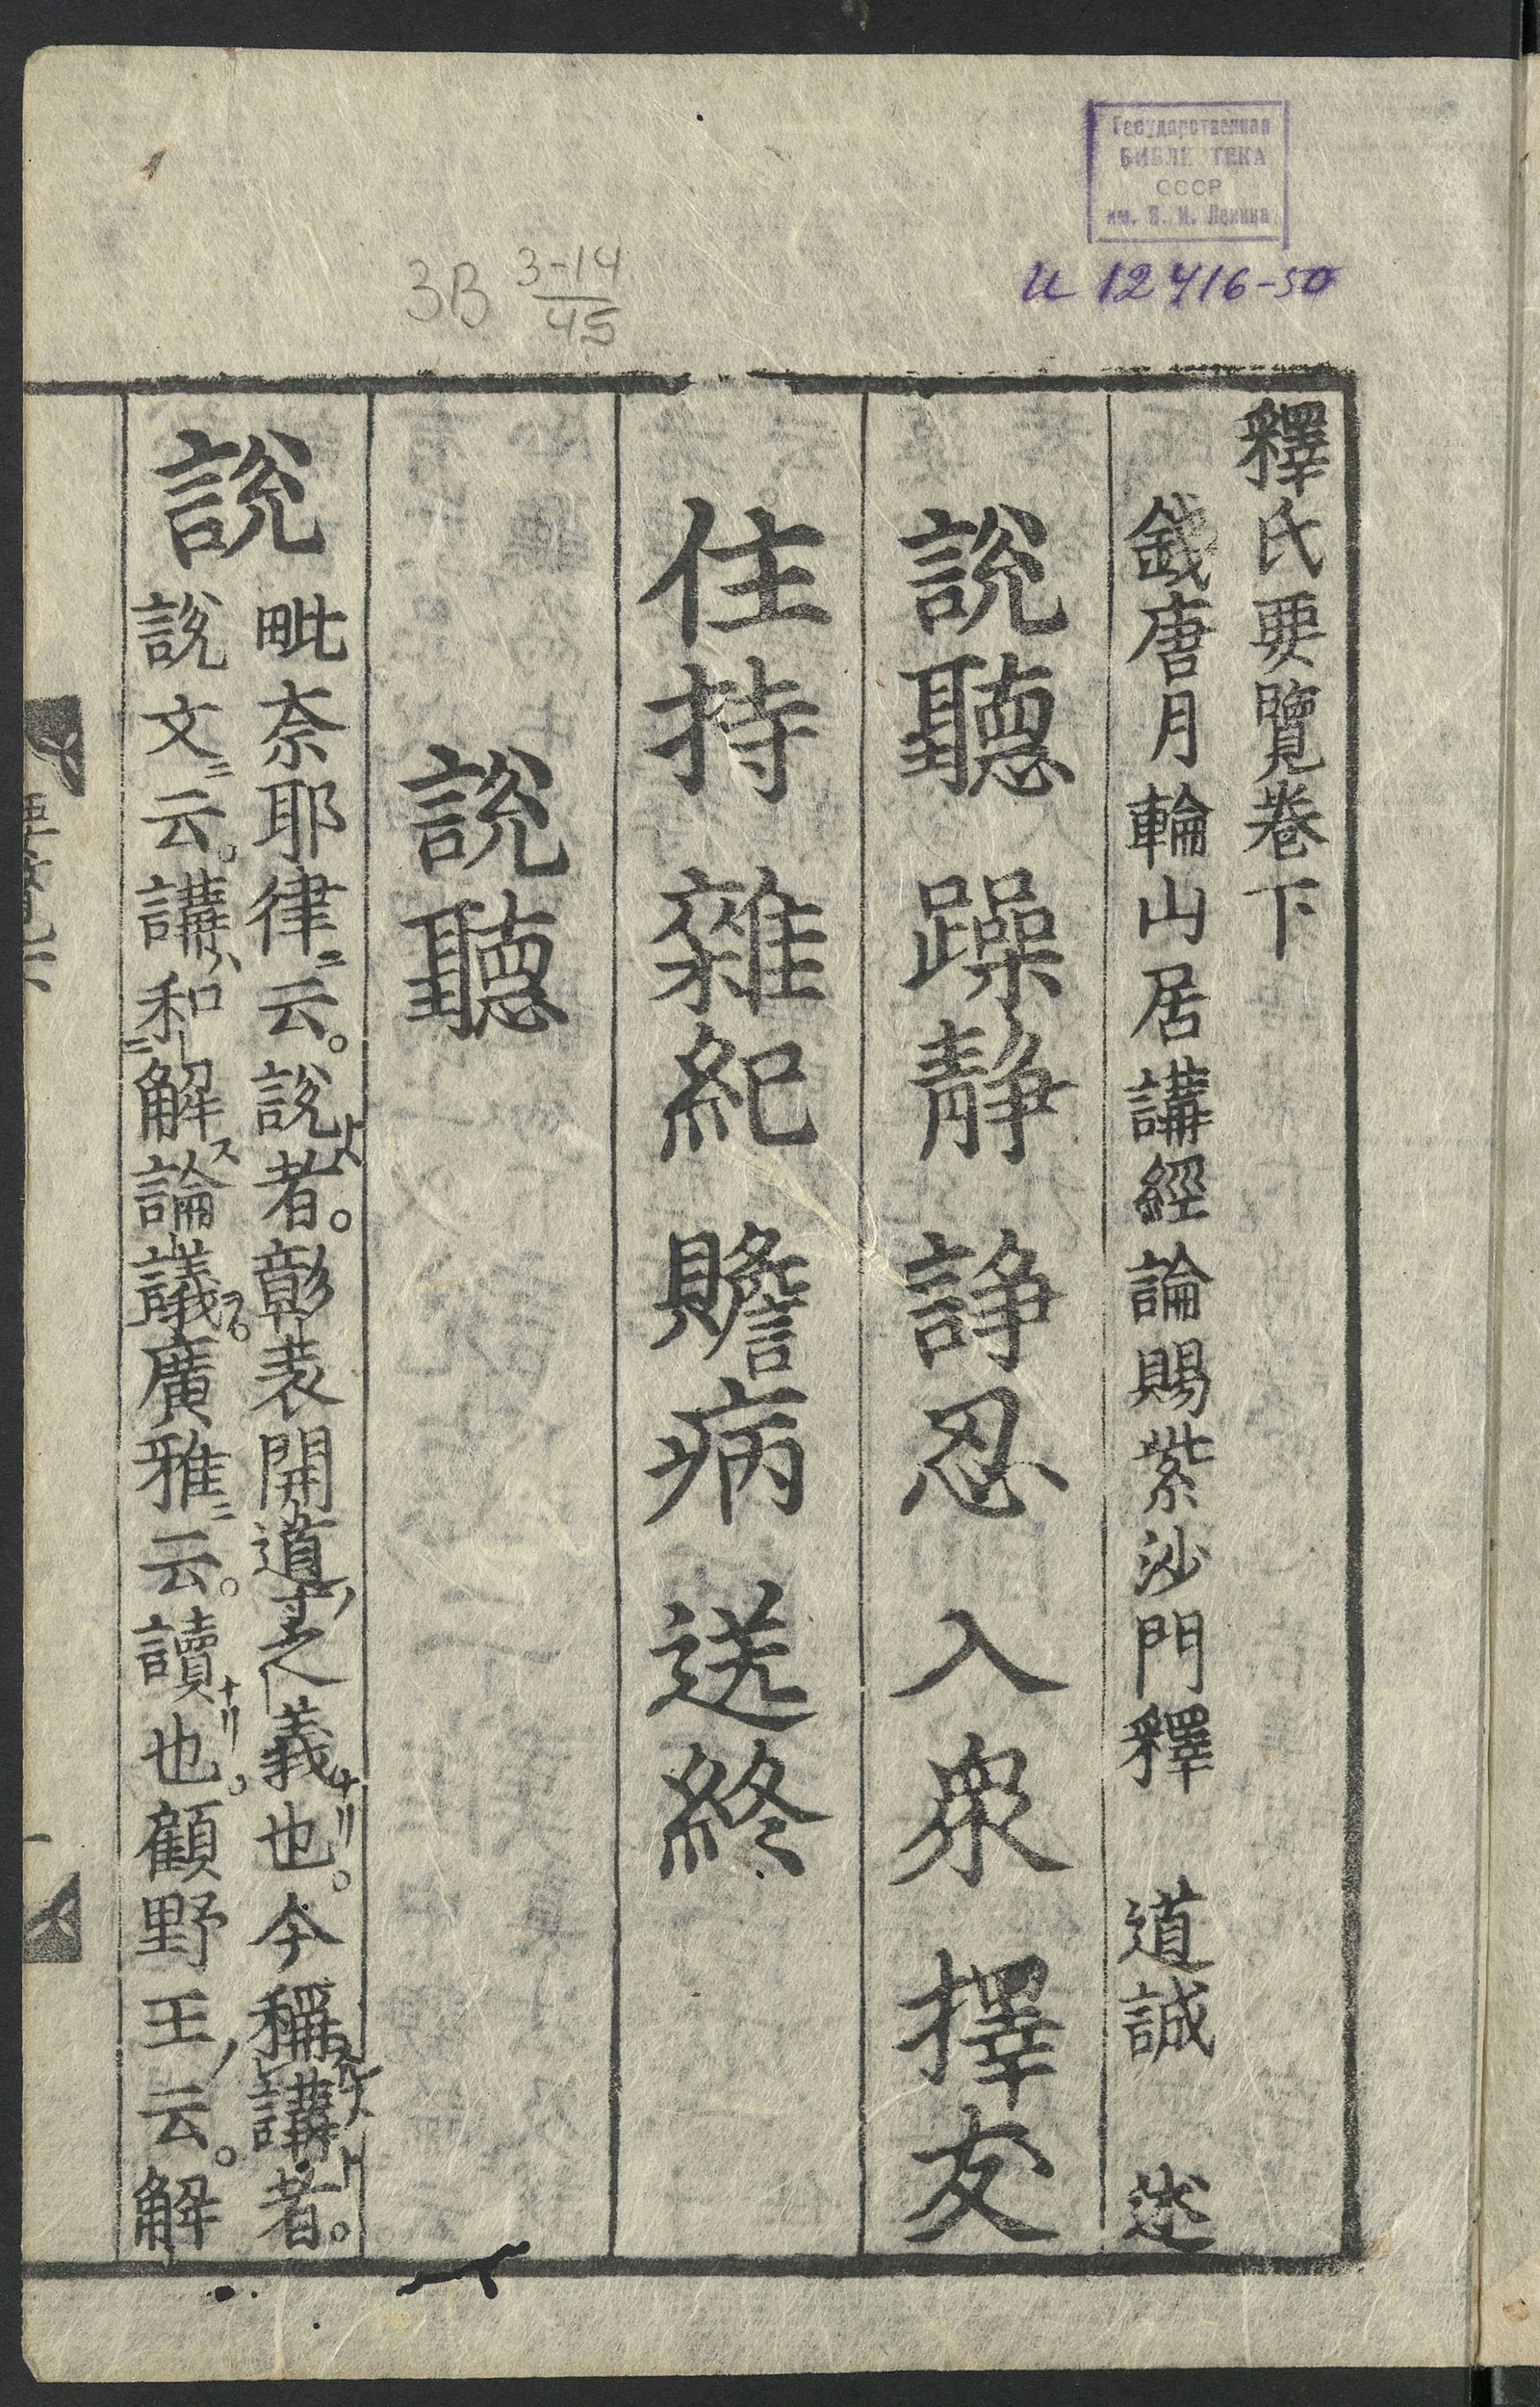 Государственная
БИБЛИОТЕКА
СССР
им. В. И. Ленина
И 12416-50
3В 3-14
45
釋氏要覽卷下
錢唐月輪山居講經論賜紫沙門釋 道誠 述
說聽 躁靜 諍忍 入衆 擇友
住持 雜紀 瞻病 送終
說聽
說
毗奈耶律ニ云。說ト者。彰表開道之義ナリ也。今稱講者。
說文ニ云。講ハ和解論議ス。廣雅ニ云。讀ナリ也。顧野王ノ云。解